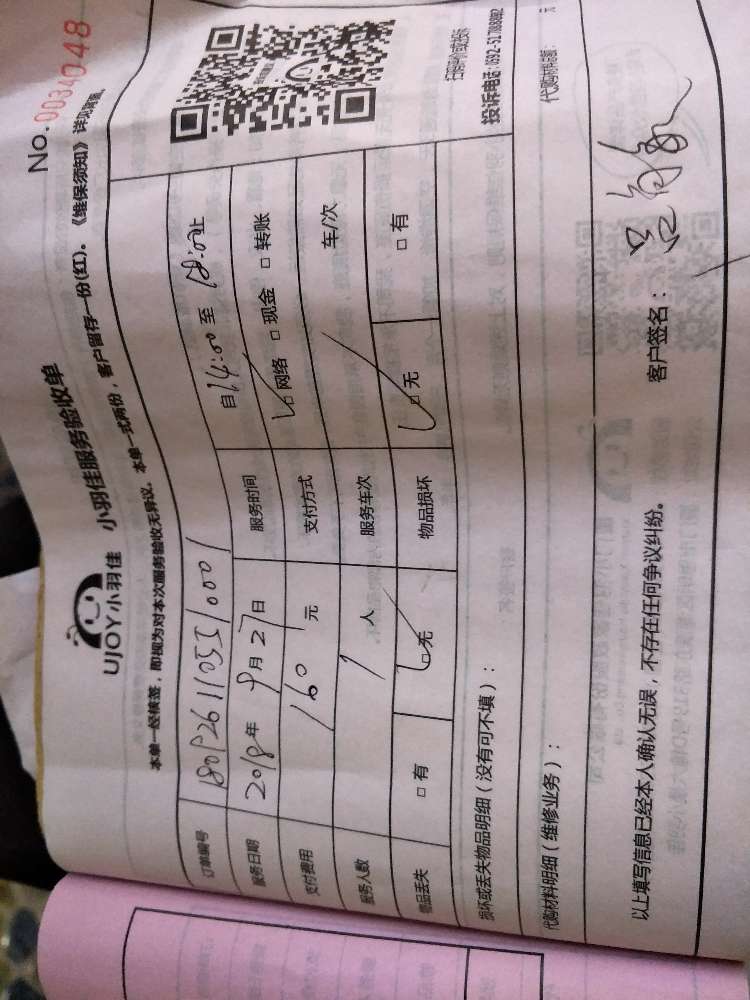 No. 0034048
UJOY小羽佳 小羽佳服务验收单
本单一经核签，即视为对本次服务验收无异议。本单一式两份，客户留存一份(红)。《维保须知》详见背面。
订单编号 1809261105510001
服务日期 2018年9月27日 服务时间 自14:00至18:00止
支付费用 160元 支付方式 □网络 □现金 □转账
服务人数 1人 服务车次 车/次
物品丢失 □有 □无 物品损坏 □无 □有
损坏或丢失物品明细（没有可不填）：
投诉电话:0592-5178880
代购材料明细（维修业务）： 元
以上填写信息已经本人确认无误，不存在任何争议纠纷。 客户签名：